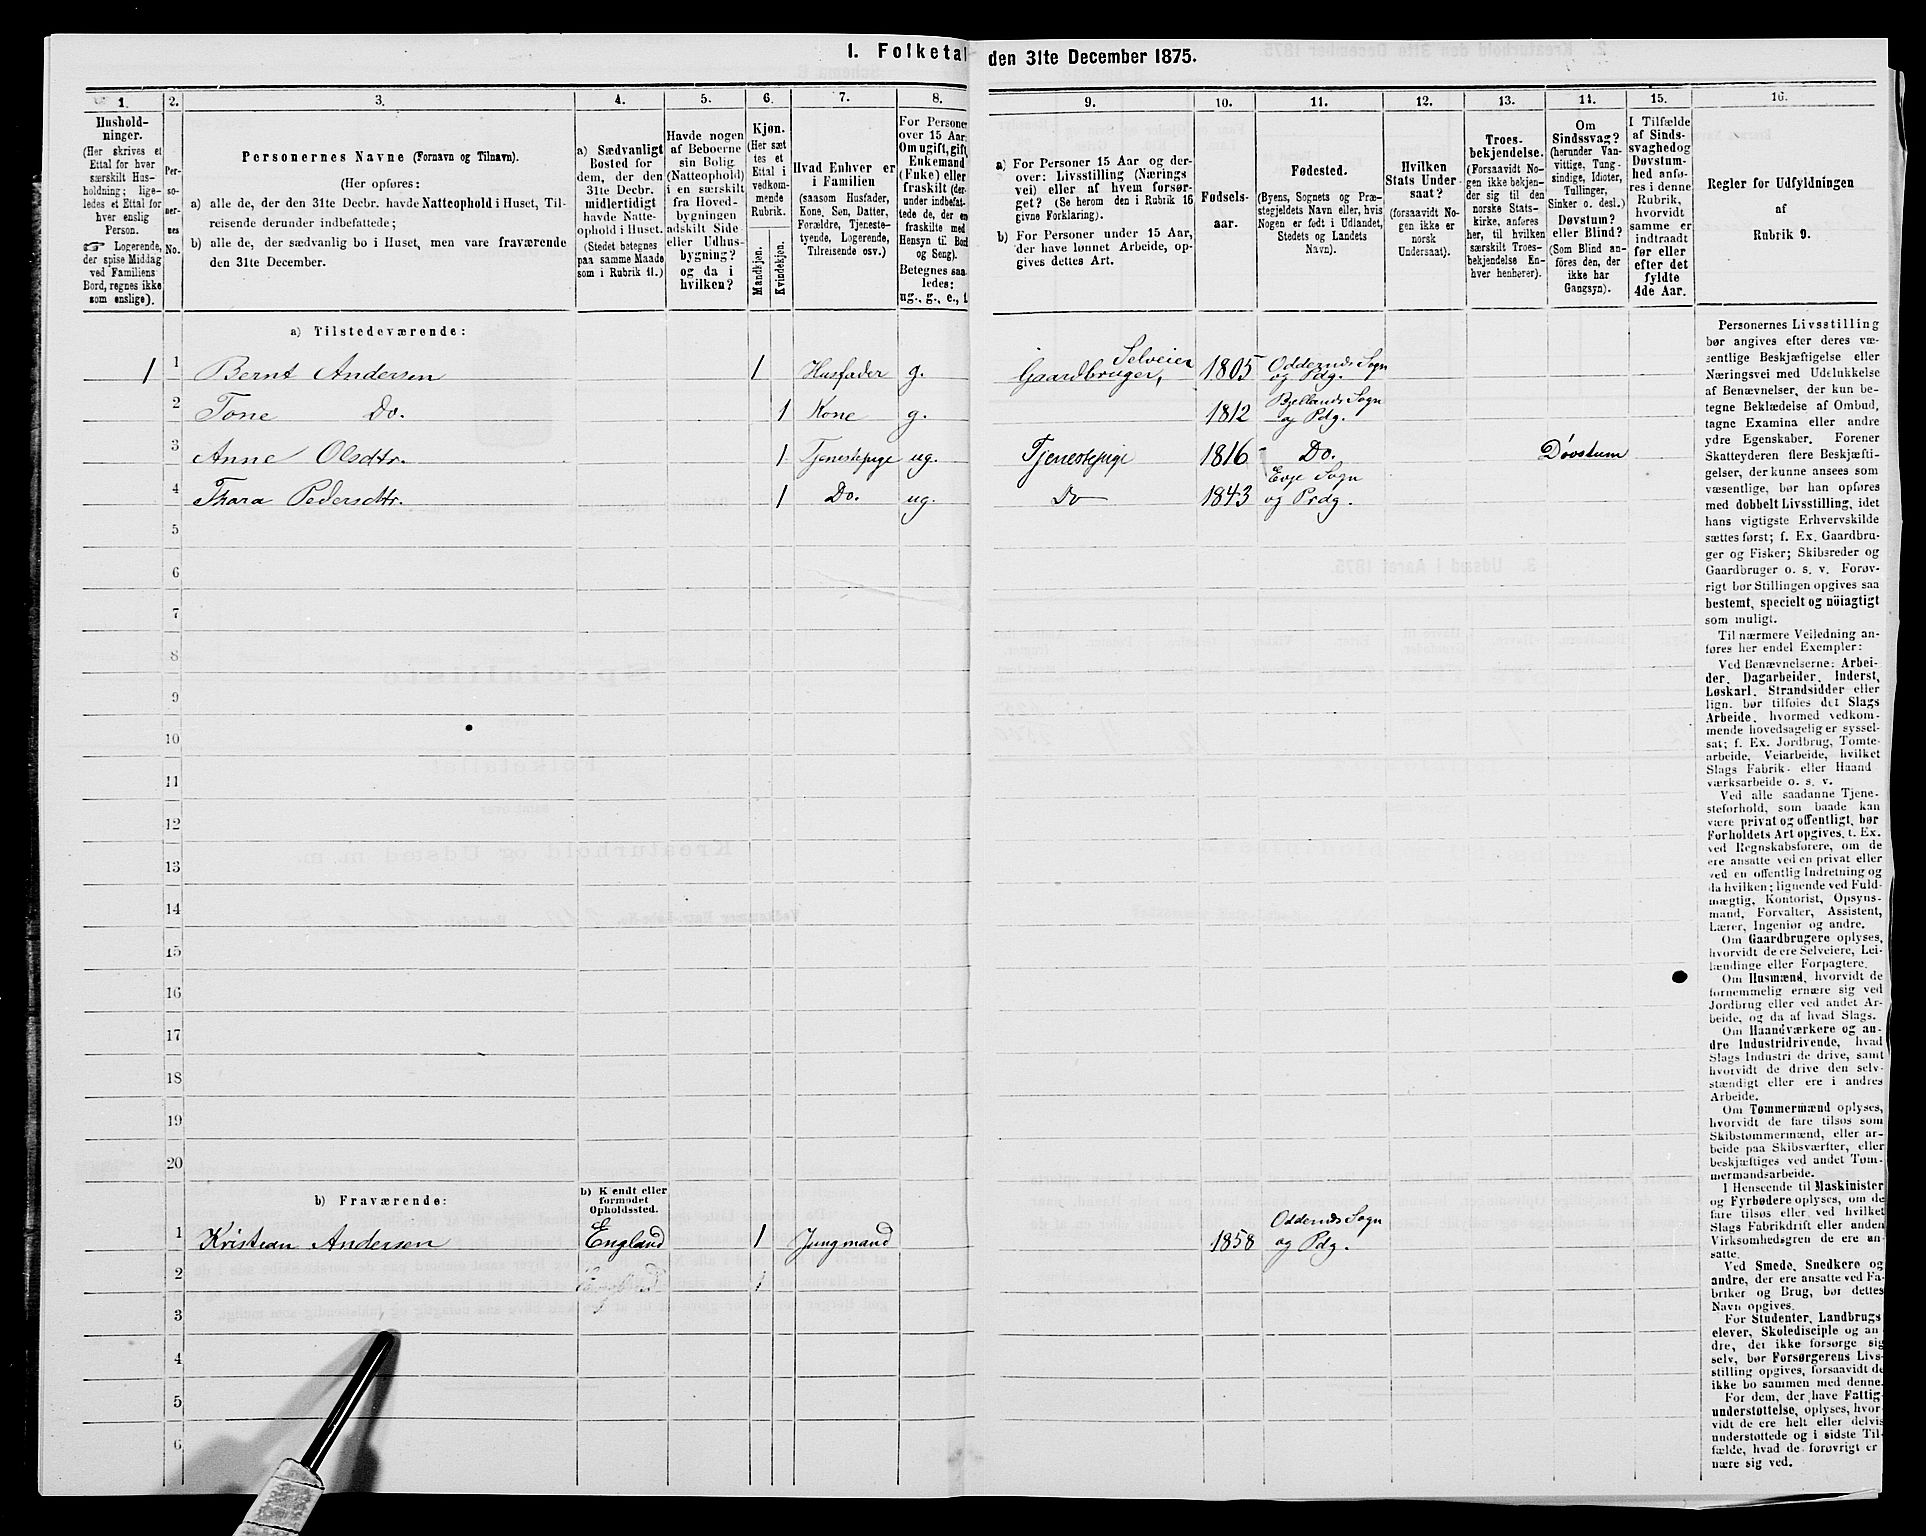 1. Folketal den 31te December 1875.
1.
2.
3.
4.
5.
6.
7.
8.
9.
10.
11.
12.
13.
14.
15.
16.
Hushold-
ninger.
(Her skrives et
Ettal for hver
særskilt Hus-
holdning; lige-
ledes et Ettal for
hver enslig
Person.
☞ Logerende,
der spise Middag
ved Familiens
Bord, regnes ikke
som enslige).
Per-
so-
ner-
nes
No.
Personernes Navne (Fornavn og Tilnavn).
(Her opføres:
a) alle de, der den 31te Decbr. havde Natteophold i Huset, Til-
reisende derunder indbefattede;
b) alle de, der sædvanlig bo i Huset, men vare fraværende
den 31te December.
a) Sædvanligt
Bosted for
dem, der den
31te Decbr.
midlertidigt
havde Natte-
ophold i Huset.
(Stedet betegnes
paa samme Maade
som i Rubrik 11.)
Havde nogen
af Beboerne
sin Bolig
(Natteophold)
i en særskilt
fra Hoved-
bygningen
adskilt Side
eller Udhus-
bygning?
og da i
hvilken?
Kjøn.
(Her sæt
tes et
Ettal i
vedkom-
mende
Rubrik.
Mandkjøn.
Kvindekjøn.
Hvad Enhver er
i Familien
(saasom Husfader,
Kone, Søn, Datter,
Forældre, Tjeneste-
tyende, Logerende,
Tilreisende osv.)
For Personer
over 15 Aar:
Om ugift, gift,
Enkemand
(Enke) eller
fraskilt (der-
under indbefat-
tede de, der er
fraskilte med
Hensyn til Bord
og Seng).
Betegnes saa-
ledes:
ug., g., e., f.
a) For Personer 15 Aar og der-
over: Livsstilling (Nærings
vei) eller af hvem forsør-
get? (Se herom den i Rubrik 16
givne Forklaring).
b) For Personer under 15 Aar,
der have lønnet Arbeide, op-
gives dettes Art.
Fødsels-
aar.
Fødested.
(Byens, Sognets og Præ-
stegjeldets Navn eller, hvis
Nogen er født i Udlandet,
Stedets og Landets
Navn).
Hvilken
Stats Under-
saat?
(forsaavidt No-
gen ikke er
norsk
Undersaat).
Troes-
bekjendelse.
(Forsaavidt No-
gen ikke bekjen-
der sig til den
norske Stats-
kirke, anføres
her, til hvilken
særskilt Troes-
bekjendelse En-
hver henhører).
Om
Sindssvag?
(herunder Van-
vittige, Tung-
sindige, Idioter,
Tullinger,
Sinker o. desl.)
Døvstum?
eller Blind?
(Som Blind an-
føres den, der
ikke har
Gangsyn).
I Tilfælde
af Sinds-
svaghed og
Døvstum-
hed anfø-
res i denne
Rubrik,
hvorvidt
samme er
indtraadt
før eller
efter det
fyldte
4de Aar.
Regler for Udfyldningen
af
Rubrik 9.
a) Tilstedeværende:
1 1 Bernt Andersen 1 Husfader g. Gaardbruger, Selveier 1805 Oddernds Sogn og Pdg.
2 Tone Do. 1 Kone g. 1812 Bjellands Sogn og Pdg.
3 Anne Olsdtr. 1 Tjenestepige ug. Tjenestepige 1816 Do. Døvstum
4 Thora Pedersdtr. 1 Do. ug. Do 1843 Evje Sogn og Prdg.
5
6
7
8
9
10
11
12
13
14
15
16
17
18
19
20
b) Fraværende:
b) Kjendt eller
formodet
Opholdssted.
1 Kristian Andersen England 1 Jungmand 1858 Oddernds Sogn og Pdg.
2 England 1
3
4
5
6
Personernes Livsstilling
bør angives efter deres væ-
sentlige Beskjæftigelse eller
Næringsvei med Udelukkelse
af Benævnelser, der kun be-
tegne Beklædelse af Ombud,
tagne Examina eller andre
ydre Egenskaber. Forener
Skatteyderen flere Beskjæfti-
gelser, der kunne ansees som
væsentlige, bør han opføres
med dobbelt Livsstilling, idet
hans vigtigste Erhvervskilde
sættes først; f. Ex. Gaardbru-
ger og Fisker; Skibsreder og
Gaardbruger o. s. v. Forøv-
rigt bør Stillingen opgives saa
bestemt, specielt og nöiagtigt
som muligt.
Til nærmere Veiledning an-
føres her endel Exempler:
Ved Benævnelserne: Arbei-
der, Dagarbeider, Inderst,
Løskarl, Strandsidder eller
lign. bør tilføies det Slags
Arbeide, hvormed vedkom-
mende hovedsagelig er syssel-
sat; f. Ex. Jordbrug, Tomte-
arbeide, Veiarbeide, hvilket
Slags Fabrik- eller Haand
værksarbeide o. s. v.
Ved alle saadanne Tjene-
steforhold, som baade kan
være privat og offentligt, bør
Forholdets Art opgives, t. Ex.
ved Regnskabsførere, om de
ere ansatte ved en privat eller
ved en offentlig Indretning og
da hvilken; lignende ved Fuld-
mægtig, Kontorist, Opsyns-
mand, Forvalter, Assistent,
Lærer, Ingeniør og andre.
Om Gaardbrugere oplyses,
hvorvidt de ere Selveiere, Lei-
lændinge eller Forpagtere.
Om Husmænd, hvorvidt de
fornemmelig ernære sig ved
Jordbrug eller ved andet Ar-
beide, og da af hvad Slags.
Om Haandværkere og an-
dre Industridrivende, hvad
Slags Industri de drive, samt
hvorvidt de drive den selv-
stændigt eller ere i andres
Arbeide.
Om Tømmermænd oplyses,
hvorvidt de fare tilsøs som
Skibstømmermænd, eller ar-
beide paa Skibsværfter, eller
beskjæftiges ved andet Tøm-
mermandsarbeide.
I Henseende til Maskinister
og Fyrbødere oplyses, om de
fare tilsøs eller ved hvilket
Slags Fabrikdrift eller anden
Virksomhedsgren de ere an-
satte.
Ved Smede, Snedkere og
andre, der ere ansatte ved Fa-
briker og Brug, bør dettes
Navn opgives.
For Studenter, Landbrugs
elever, Skoledisciple og an
dre, der ikke forsørge sig
selv, bør Forsørgerens Livs-
stilling opgives, forsaavidt de
ikke bo sammen med denne.
For dem, der have Fattig-
understøttelse, oplyses, hvor-
vidt de ere helt eller delvis
understøttede og i sidste Til-
fælde, hvad de forøvrigt er
nære sig ved.